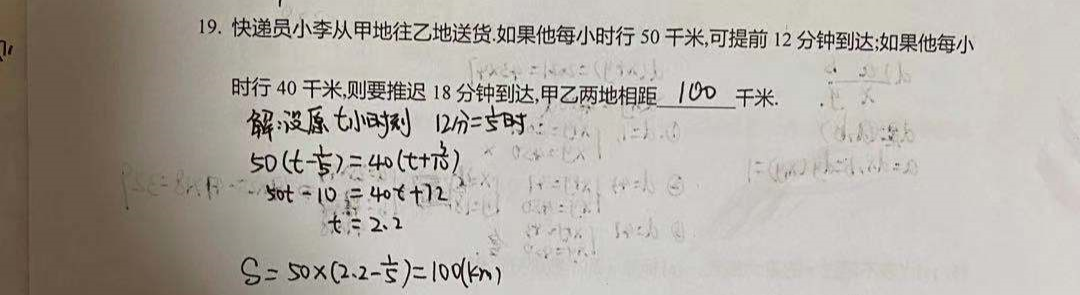 19. 快递员小李从甲地往乙地送货.如果他每小时行 50 千米,可提前 12 分钟到达;如果他每小
时行 40 千米,则要推迟 18 分钟到达,甲乙两地相距 100 千米.
解:设原 t小时到 12分=1/5时
50(t-1/5)=40(t+3/10)
50t-10=40t+12
t=2.2
S=50×(2.2-1/5)=100(km)